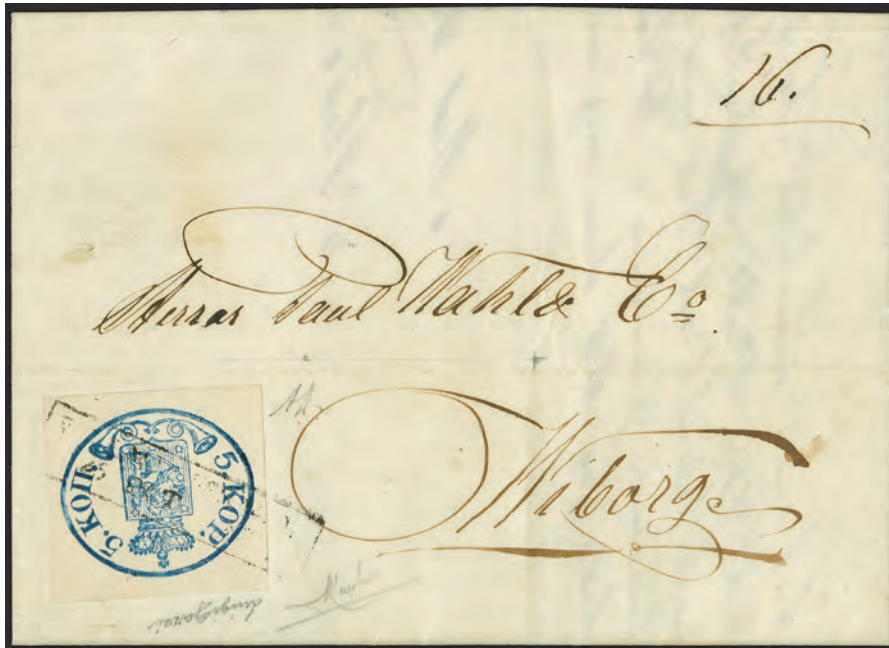 16.
Herrar Paul Wahl & Co.
Wiborg
5. КОП. 5. KOP.